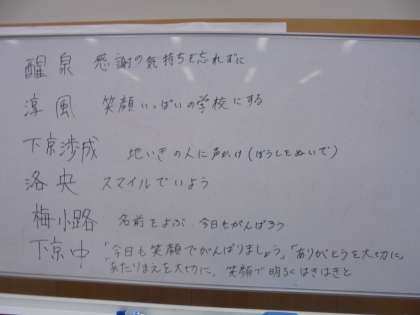 醒泉 感謝の気持ちを忘れずに
淳風 笑顔いっぱいの学校にする
下京渉成 地いきの人に声かけ(ぼうしをぬいで)
洛央 スマイルでいよう
梅小路 名前をよぶ 今日もがんばろう
下京中 「今日も笑顔でがんばりましょう」「ありがとうを大切に」
「あたりまえを大切に、笑顔で明るくはきはきと